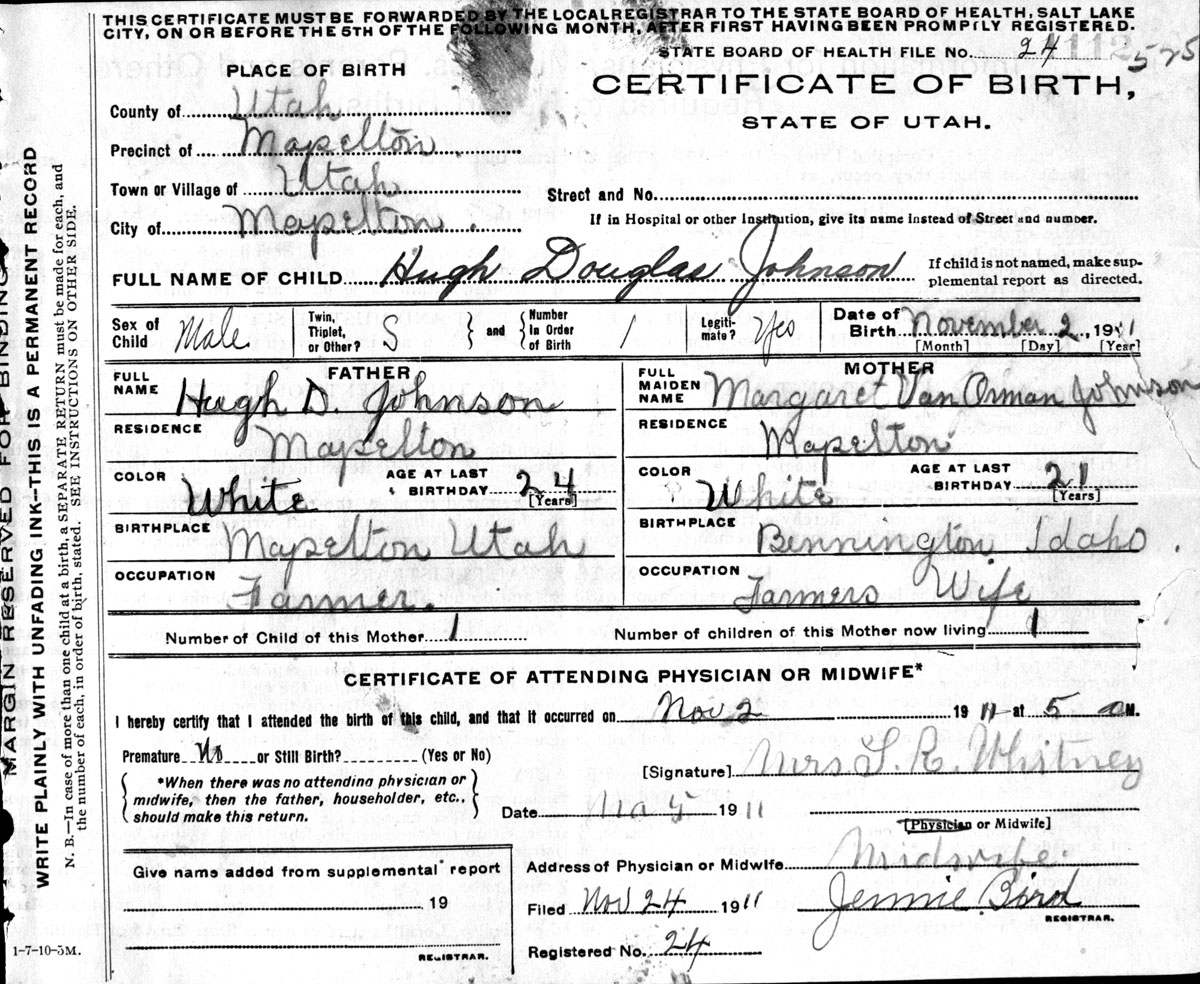 THIS CERTIFICATE MUST BE FORWARDED BY THE LOCAL REGISTRAR TO THE STATE BOARD OF HEALTH, SALT LAKE
CITY, ON OR BEFORE THE 5TH OF THE FOLLOWING MONTH, AFTER FIRST HAVING BEEN PROMPTLY REGISTERED.
STATE BOARD OF HEALTH FILE No. 24 112 575
PLACE OF BIRTH
CERTIFICATE OF BIRTH,
STATE OF UTAH.
County of Utah
Precinct of Mapelton
Town or Village of Utah
Street and No.
City of Mapelton.
If in Hospital or other Institution, give its name instead of Street and number.
FULL NAME OF CHILD Hugh Douglas Johnson
If child is not named, make sup-
plemental report as directed.
Sex of Child Male
Twin, Triplet, or Other? S
and Number in Order of Birth 1
Legiti-mate? Yes
Date of Birth November 2 1911
[Month] [Day] [Year]
FATHER
FULL NAME Hugh D. Johnson
RESIDENCE Mapelton
COLOR White AGE AT LAST BIRTHDAY 24 [Years]
BIRTHPLACE Mapelton Utah
OCCUPATION Farmer.
MOTHER
FULL MAIDEN NAME Margaret Van Orman Johnson
RESIDENCE Mapelton
COLOR White AGE AT LAST BIRTHDAY 21 [Years]
BIRTHPLACE Bennington Idaho.
OCCUPATION Farmers Wife
Number of Child of this Mother 1 Number of children of this Mother now living 1
CERTIFICATE OF ATTENDING PHYSICIAN OR MIDWIFE*
I hereby certify that I attended the birth of this child, and that it occurred on Nov 2 1911 at 5 a M.
Premature No or Still Birth? (Yes or No)
[Signature] Mrs. L. R. Whitney
*When there was no attending physician or
midwife, then the father, householder, etc.,
should make this return.
Date 1911
[Physician or Midwife]
Give name added from supplemental report
19
REGISTRAR.
Address of Physician or Midwife Midwife
Filed Nov 24 1911 Jennie Bird
REGISTRAR.
Registered No. 24
1-7-10-3M.
MARGIN RESERVED FOR BINDING
WRITE PLAINLY WITH UNFADING INK-THIS IS A PERMANENT RECORD
N. B.—In case of more than one child at a birth, a SEPARATE RETURN must be made for each, and
the number of each, in order of birth, stated. SEE INSTRUCTIONS ON OTHER SIDE.